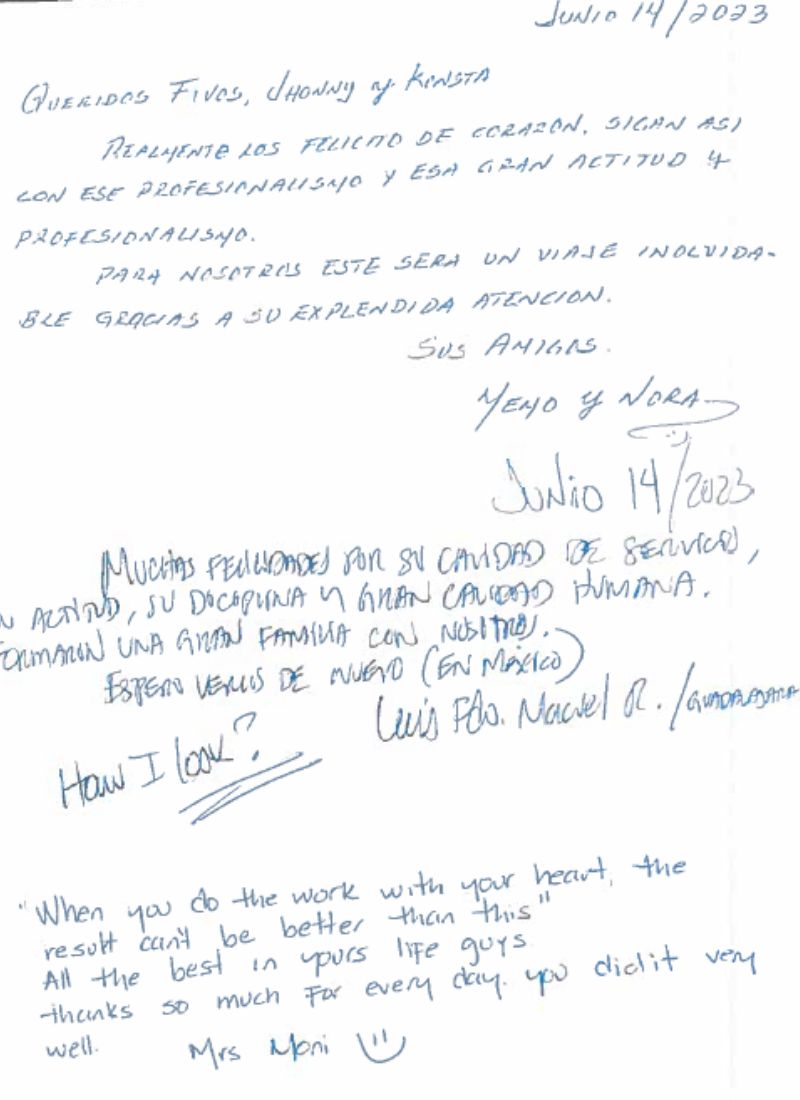 JUNIO 14/2023
QUERIDOS FIVOS, JHONNY y KONSTA
REALMENTE LOS FELICITO DE CORAZON. SIGAN ASI
CON ESE PROFESIONALISMO Y ESA GRAN ACTITUD Y
PROFESIONALISMO.
PARA NOSOTROS ESTE SERA UN VIAJE INOLVIDA-
BLE GRACIAS A SU EXPLENDIDA ATENCION.
SUS AMIGOS.
MEMO y NORA
JUNIO 14/2023
MUCHAS FELICIDADES POR SU CALIDAD DE SERVICIO,
ACTITUD, SU DICIPLINA y GRAN CALIDAD HUMANA.
FORMARON UNA GRAN FAMILIA CON NOSOTROS.
ESPERO VERLOS DE NUEVO (EN MÉXICO)
Luis Fdo. Maciel R. /GUADALAJARA
How I look?
"When you do the work with your heart, the
result can't be better than this"
All the best in yours life guys
thanks so much For every day. you did it very
well. Mrs Moni